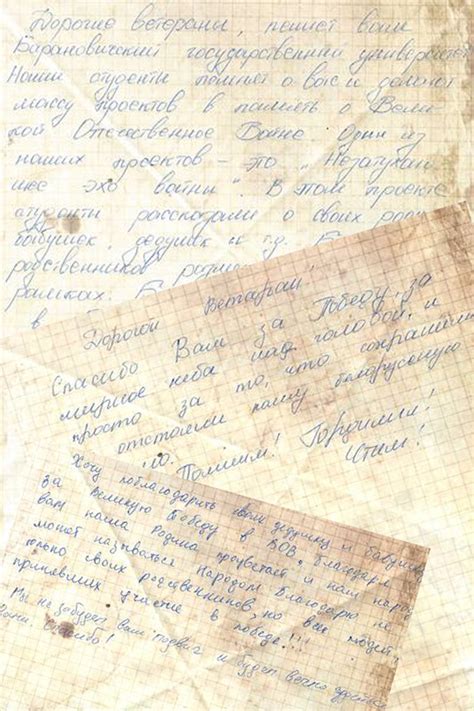 Дорогие ветераны, пишет вам
Барановичский государственный университет
Наши студенты помнят о вас и делают
массу проектов в память о Вели-
кой Отечественное Войне. Один из
наших проектов - это „Незатухаю
шее эхо войны". В этом проекте
студенты рассказали о своих
бабушек, дедушек и т.д.
родственников
рамках.
в
Дорогой Ветеран!
Спасибо Вам за Победу, за
мирное неба над головой, и
просто за то, что сохранили
отстояли нашу белорусскую
Помним! Гордимся!
Чтим!
Хочу поблагодарить своих дедушку и бабушку
за Великую Победу в ВОВ. Благодаря
вам наша Родина процветает и наш народ
может называться Народом. Благодарю не
только своих родственников, но всех людей,
принявших участие в победе!!!
Мы не забудем ваш подвиг и будем вечно
Спасибо!